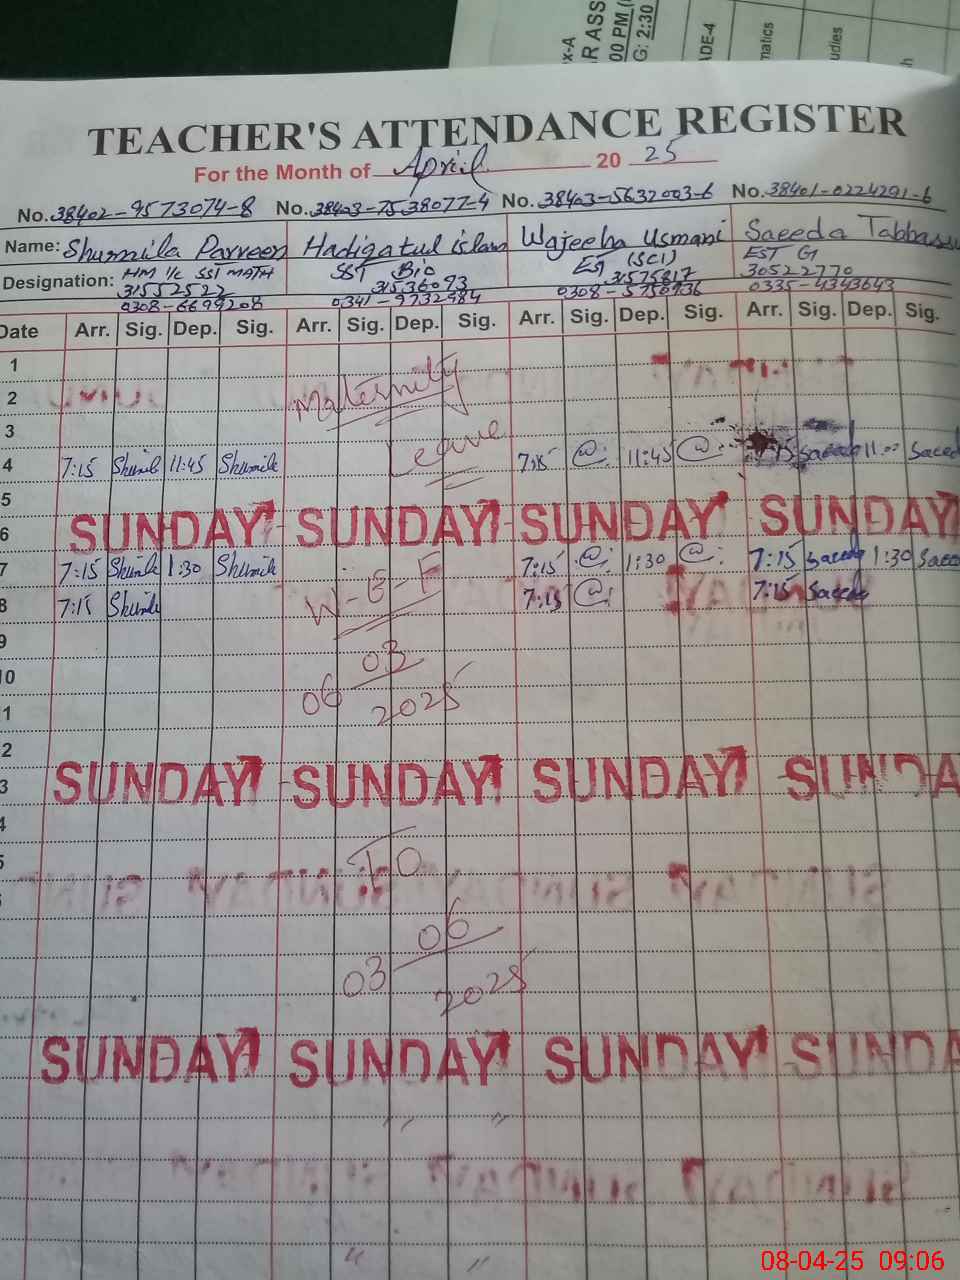 TEACHER'S ATTENDANCE REGISTER
For the Month of April 20 25
No. 38402-9573074-8 No. 38403-7538077-4 No. 38403-5632003-6 No. 38401-0224291-6
Name: Shumila Parveen Hadiqatul islam Wajeeha Usmani Saeeda Tabbassu
Designation: HM I/c SST MATH SST Bio EST (SCI) EST G
31552522 31536093 31575817 30522770
0308-6699208 0341-9732984 0308-5750936 0335-4343643
Date Arr. Sig. Dep. Sig. Arr. Sig. Dep. Sig. Arr. Sig. Dep. Sig. Arr. Sig. Dep. Sig.
1
2 Maternity
3
4 7:15 Shumil 11:45 Shumile Leave 7:15 @: 11:45 @: 15 Saeeda 11:00 Saeed
5
6 SUNDAY SUNDAY SUNDAY SUNDAY
7 7:15 Shumile 1:30 Shumile W-E-F 7:15 @: 1:30 @: 7:15 Saeeda 1:30 Saeed
8 7:15 Shumile 7:15 @: 7:15 Saeeda
9
10 06 03 2025
1
2
3 SUNDAY SUNDAY SUNDAY SUNDA
4
5 TO
03 06 2025
SUNDAY SUNDAY SUNDAY SUNDA
08-04-25 09:06
ADE-4
matics
udies
R ASS
00 PM
G: 2:30